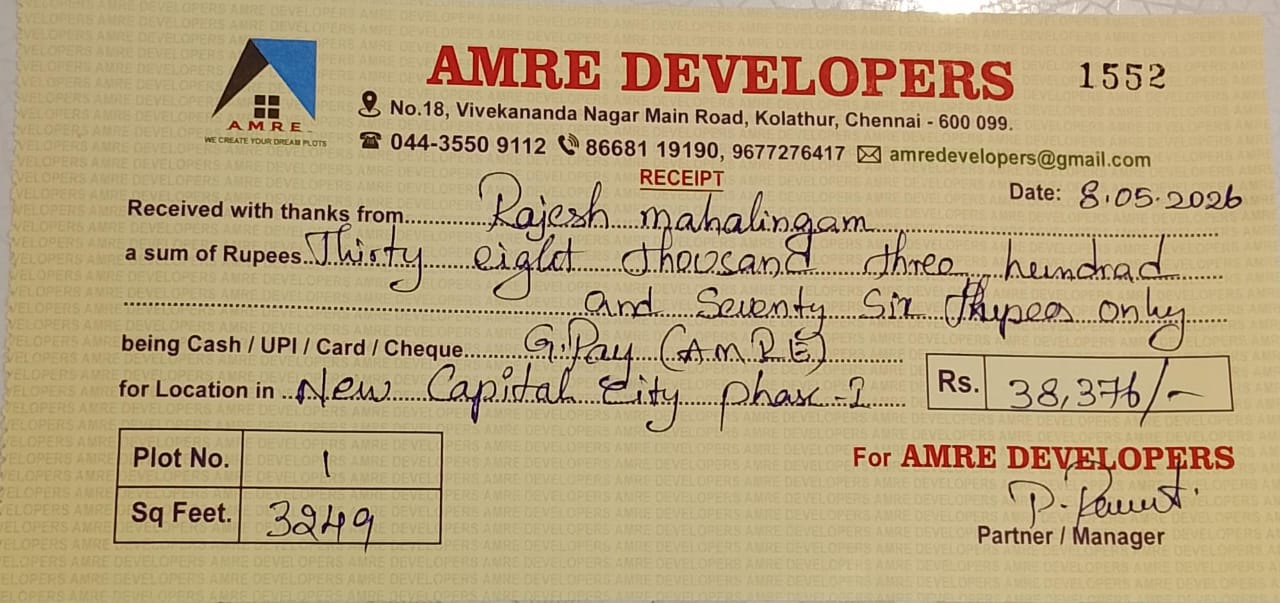 AMRE DEVELOPERS 1552
AMRE
WE CREATE YOUR DREAM PLOTS
No.18, Vivekananda Nagar Main Road, Kolathur, Chennai - 600 099.
044-3550 9112 86681 19190, 9677276417 amredevelopers@gmail.com
RECEIPT
Date: 8.05.2026
Received with thanks from Rajesh mahalingam
a sum of Rupees Thirty eight thousand three hundrad
and Seventy Six Rupees only
being Cash / UPI / Card / Cheque G.Pay (AMRE)
for Location in New Capital City phase-I
Rs. 38,376/-
Plot No. 1
Sq Feet. 3249
For AMRE DEVELOPERS
Partner / Manager